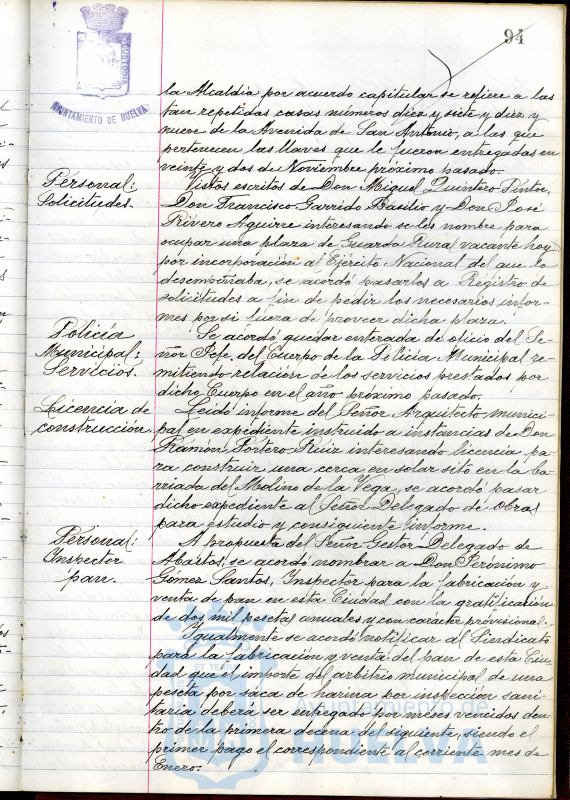 94
AYUNTAMIENTO DE HUELVA
la Alcaldía por acuerdo capitular se refiere a las
tan repetidas casas números diez y siete y diez y
nueve de la Avenida de San Antonio, a las que
pertenecen las llaves que le fueron entregadas en
veinte y dos de Noviembre próximo pasado.
Personal:
Solicitudes.
Vistos escritos de Don Miguel Quintero Pintor,
Don Francisco Garrido Basilio y Don José
Rivero Aguirre interesando se les nombre para
ocupar una plaza de Guarda Rural vacante hoy
por incorporación al Ejército Nacional del que la
desempeñaba, se acordó pasarlos a Registro de
solicitudes a fin de pedir los necesarios infor-
mes por si fuera de proveer dicha plaza.
Policía
Municipal:
Servicios.
Se acordó quedar enterada de oficio del Se-
ñor Jefe del Cuerpo de la Policía Municipal re-
mitiendo relación de los servicios prestados por
dicho Cuerpo en el año próximo pasado.
Licencia de
construcción.
Leido informe del Señor Arquitecto munici-
pal en expediente instruido a instancias de Don
Ramón Portero Ruiz interesando licencia pa-
ra construir una cerca en solar sito en la ba-
rriada del Molino de la Vega, se acordó pasar
dicho expediente al Señor Delegado de Obras
para estudio y consiguiente informe.
Personal:
Inspector
pan.
A propuesta del Señor Gestor Delegado de
Abastos, se acordó nombrar a Don Jerónimo
Gómez Santos, Inspector para la fabricación y
venta de pan en esta Ciudad con la gratificación
de dos mil pesetas anuales y con caracter provisional.
Igualmente se acordó notificar al Sindicato
para la fabricación y venta del pan de esta Ciu-
dad que el importe del arbitrio municipal de una
peseta por saca de harina por inspección sani-
taria deberá ser entregado por meses vencidos den-
tro de la primera decena del siguiente, siendo el
primer pago el correspondiente al corriente mes de
Enero.
Ayuntamiento de
HUELVA